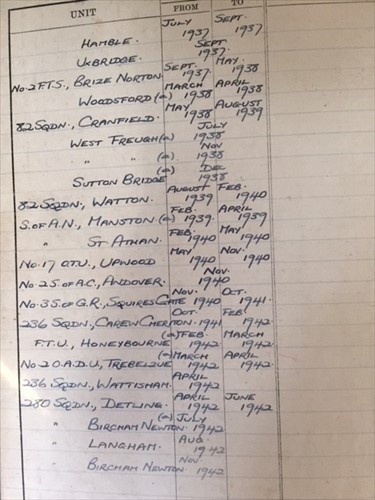 UNIT FROM TO
HAMBLE. JULY 1937 SEPT. 1937
UXBRIDGE. SEPT. 1937.
No. 2 F.T.S., BRIZE NORTON. SEPT. 1937. MAY. 1938
WOODSFORD (a) MARCH 1938 APRIL 1938
82 SQDN., CRANFIELD. MAY 1938 AUGUST 1939
WEST FREUGH (a) JULY 1938
" " (a) NOV 1938
SUTTON BRIDGE (a) DEC 1938
82 SQDN., WATTON. AUGUST 1939 FEB. 1940
S. of A.N., MANSTON. (a) FEB. 1939. APRIL 1939
" ST ATHAN. FEB. 1940 MAY 1940
No. 17 O.T.U., UPWOOD MAY 1940 NOV. 1940
No. 2 S. of A.C., ANDOVER. NOV. 1940
No. 3 S. of G.R., SQUIRES GATE NOV. 1940 OCT. 1941.
236 SQDN., CAREW CHERITON. OCT. 1941 FEB 1942
F.T.U., HONEYBOURNE (a) FEB. 1942 MARCH 1942
No. 2 O.A.D.U, TREBELZUE. (a) MARCH 1942 APRIL 1942
236 SQDN., WATTISHAM. APRIL 1942
280 SQDN., DETLING. APRIL 1942 JUNE 1942
" BIRCHAM NEWTON. (a) JULY 1942
" LANGHAM. AUG. 1942
" BIRCHAM NEWTON. NOV. 1942